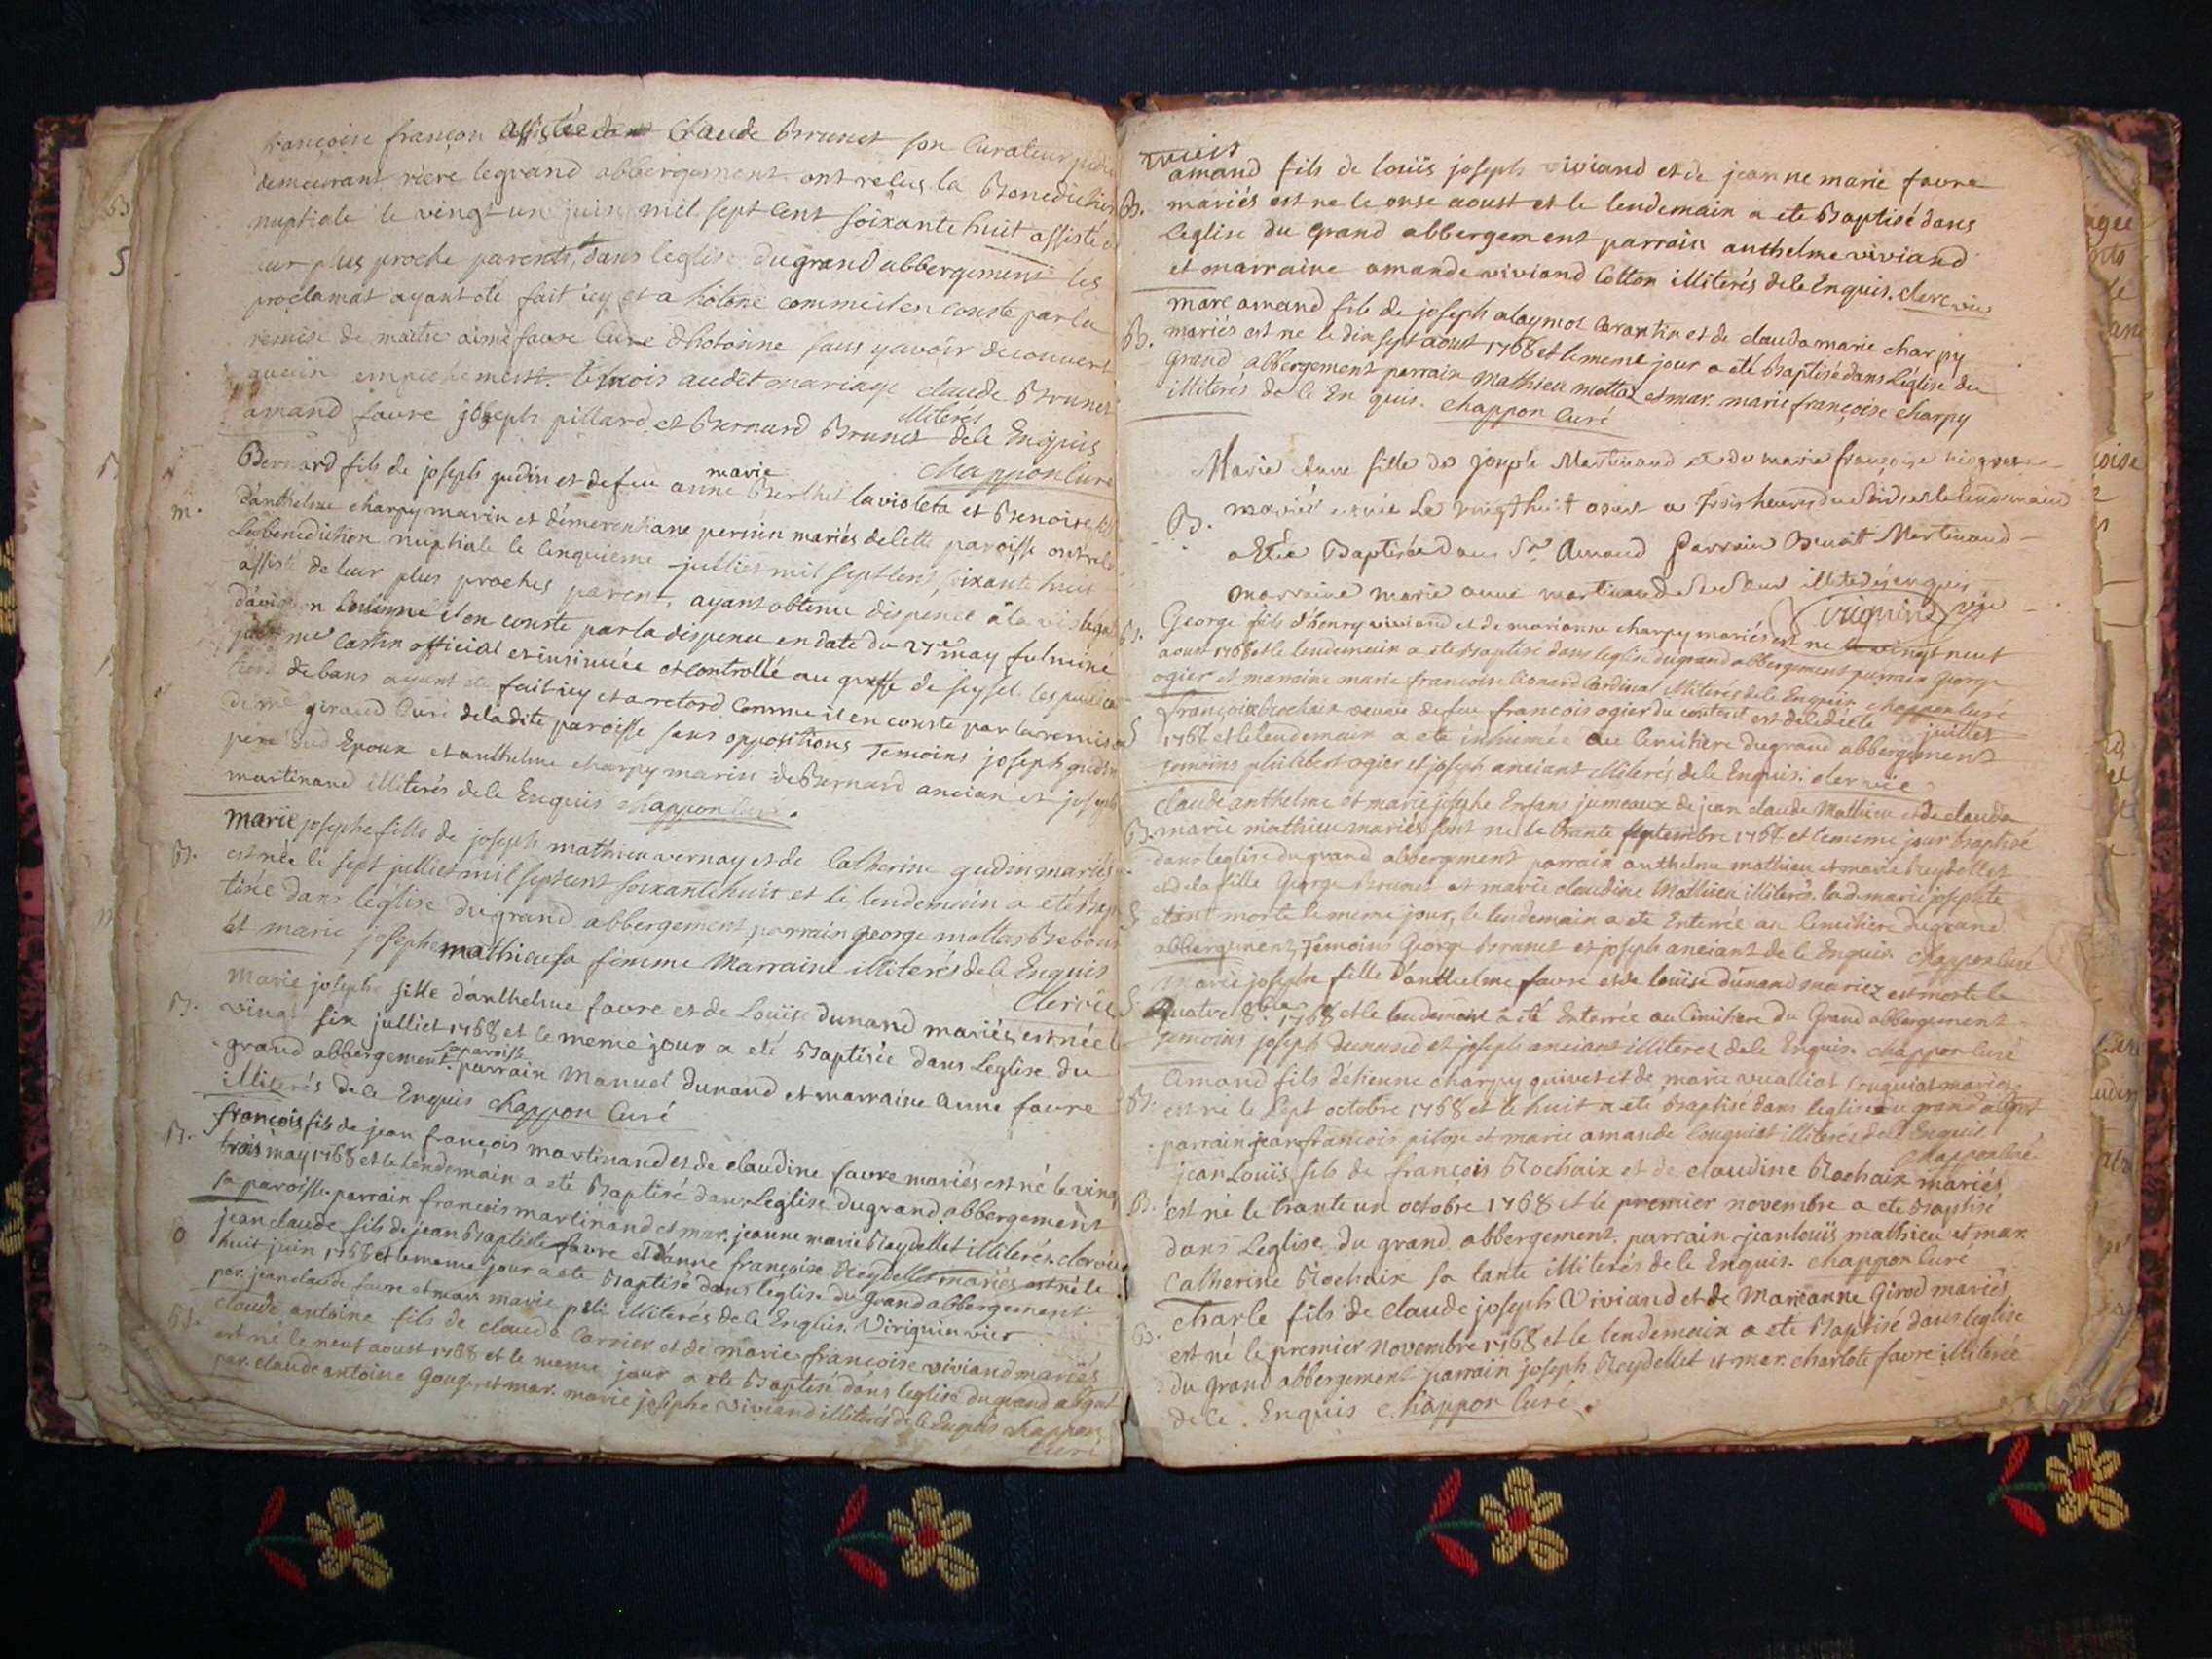 françoise françon assistée de Claude Brunet son Curateur
demeurant riere legrand abbergement ont reçus la Benediction
nuptiale le vingt un juin mil sept cent soixante huit assisté
leur plus proche parents, dans leglise du grand abbergement les
proclamat ayant ete fait icy et a hotone comme il en conste par la
remise de maitre aimé favre Curé dhotonne sans y avoir decouvert
aucun empechement. temois audit mariage claude Brunet
amand favre joseph pillard et Bernard Brunet illiterés de le Enquis
chappon Curé
m. Bernard fils de joseph gudin et de feu anne marie Berthet la violeta et Benoite
d'anthelme charpy marin et démerentiane perrin mariés de cette paroisse ont
La benediction nuptiale le cinquieme julliet mil sept cent soixante huit
assisté de leur plus proches parent, ayant obtenu dispence a la
comme il en conste par la dispence en date du 27e may fulminé
par me Castin official et insinuée et controllé au greffe de seyssel. les publica
tions de bans ayant ete fait icy et a retord Comme il en conste par la remise
de me giraud Curé de la dite paroisse sans oppositions Temoins joseph gudin
pere dud Epoux et anthelme charpy marin de Bernard ancian et joseph
martinand illiterés de le Enquis chappon Curé.
B. marie josephe fille de joseph mathieu vernay et de Catherine gudin mariés
est née le sept julliet mil sept cent soixante huit et le lendemain a eté Bap
tisée dans léglise du grand abbergement parrain george mottas
et marie josephe mathieu sa femme Marraine illiterés de le Enquis
Clervie
B. Marie josephe fille d'anthelme favre et de Louïse dunand mariés, est née le
vingt six julliet 1768 et le meme jour a eté Baptisée dans Leglise du
grand abbergement sa paroisse parrain Manuel dunand et marraine anne favre
illiterés de le Enquis chappon Curé
B. françois fils de jean françois martinand et de claudine favre mariés est né le vingt
trois may 1768 et le lendemain a eté Baptisé dans Leglise du grand abbergement
sa paroisse parrain françois martinand et mar. jeanne marie Reydellet illiterés. clervie
jean claude fils de jean Baptiste favre et d'anne françoise Reydellet mariés est né le
huit juin 1768 et le meme jour a ete Baptisé dans léglise du grand abbergement
par. jean claude favre et mar. marie illiterés de le Enquis. Viriguin vice
B. claude antoine fils de claude Carrier et de marie françoise viviand mariés
est né le neuf aoust 1768 et le meme jour a ete Baptisé dans leglise du grand
par. claude antoine Gouge et mar. marie josephe viviand illiterés de le Enquis chappon
Curé
B. amand fils de louïs joseph viviand et de jeanne marie favre
mariés est ne le onse aoust et le lendemain a ete Baptisé dans
leglise du grand abbergement parrain anthelme viviand
et marraine amande viviand Cotton illiterés de le Enquis. clervie
B. marc amand fils de joseph alaymot Carantin et de clauda marie charpy
mariés est ne le dix sept aoust 1768 et le meme jour a eté Baptisé dans l'église du
grand abbergement parrain Mathieu mottaz et mar. marie françoise charpy
illiterés de le En quis. chappon Curé
Marie Anne fille de Joseph Martinand et de marie françoise
B. mariés est née Le vingt huit aoust a Trois heures du Soir et le lendemain
a Etée Baptisée dans St. Amand Parrain Benoit Martinand
marraine marie anne martinand illiterés enquis
viriguin vie
B. George fils d'henry viviand et de marianne charpy mariés est ne le vingt neuf
aoust 1768 et le lendemain a ete Baptisé dans leglise du grand abbergement parrain George
ogier et marraine marie francoise Leonard Cardinal illiterés de le Enquis chappon Curé
S françoise Rochaix veuve de feu francois ogier du est decedée le juillet
1768 et le lendemain a ete inhumée au Cimitiere du grand abbergement
temoins philibert ogier et joseph anciant illiterés de le Enquis. clervie
claude anthelme et marie josephe Enfans jumeaux de jean claude Mathieu et de clauda
B. marie mathieu mariés sont né le trante septembre 1768 et le meme jour Baptisé
dans leglise du grand abbergement parrain anthelme mathieu et marie Reydellet
et de la fille George Brunet et marie claudine Mathieu illiterés. lad. marie josephte
S etant morte le meme jour, le lendemain a ete Enterrée au Cimitiere du grand
abbergement, Temoins George Brunet et joseph anciant de le Enquis. Chappon Curé
S. Marie josephe fille d'anthelme favre et de louïse dunand mariez est morte le
quatre 8bre 1768 et le lendemain a été Enterrée au Cimitiere du Grand abbergement
Temoins joseph dunand et joseph anciant illiterez de le Enquis. chappon Curé
B. Amand fils détienne charpy quivet et de marie vualliat Couquiat mariez
est né le sept octobre 1768 et le huit a eté Baptisé dans leglise du grand
parrain jean francois piton et marie amande Couquiat illiterés de le Enquis
chappon Curé
jean Louïs fils de françois Rochaix et de claudine Rochaix mariés
B. est né le trante un octobre 1768 et le premier novembre a ete Baptisé
dans Leglise du grand abbergement, parrain jean louïs mathieu et mar.
Catherine Rochaix sa tante illiterés de le Enquis. chappon Curé
B. Charle fils de claude joseph Viviand et de Marianne Girod mariés
est né le premier novembre 1768 et le lendemain a ete Baptisé dans leglise
du grand abbergement parrain joseph Reydellet et mar. charlote favre illiterée
de le . Enquis chappon Curé.